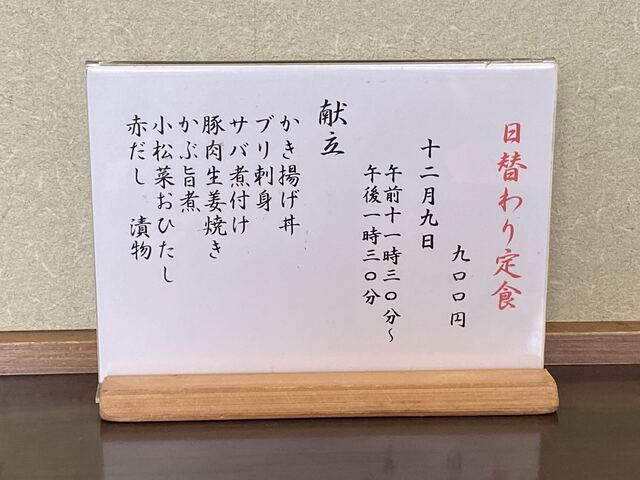 日替わり定食
九〇〇円
十二月九日
午前十一時三〇分～
午後一時三〇分
献立
かき揚げ丼
ブリ刺身
サバ煮付け
豚肉生姜焼き
かぶ旨煮
小松菜おひたし
赤だし 漬物